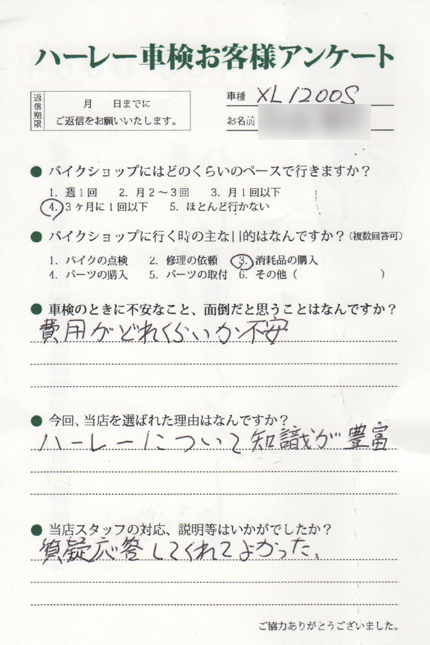 ハーレー車検お客様アンケート
返信期限
月　日までに
ご返信をお願いいたします。
車種 XL1200S
お名前
● バイクショップにはどのくらいのペースで行きますか？
1. 週1回　2. 月2～3回　3. 月1回以下
4. 3ヶ月に1回以下　5. ほとんど行かない
● バイクショップに行く時の主な目的はなんですか？（複数回答可）
1. バイクの点検　2. 修理の依頼　3. 消耗品の購入
4. パーツの購入　5. パーツの取付　6. その他（　　　　）
● 車検のときに不安なこと、面倒だと思うことはなんですか？
費用がどれくらいか不安
● 今回、当店を選ばれた理由はなんですか？
ハーレーについて知識が豊富
● 当店スタッフの対応、説明等はいかがでしたか？
質疑応答してくれてよかった、
ご協力ありがとうございました。